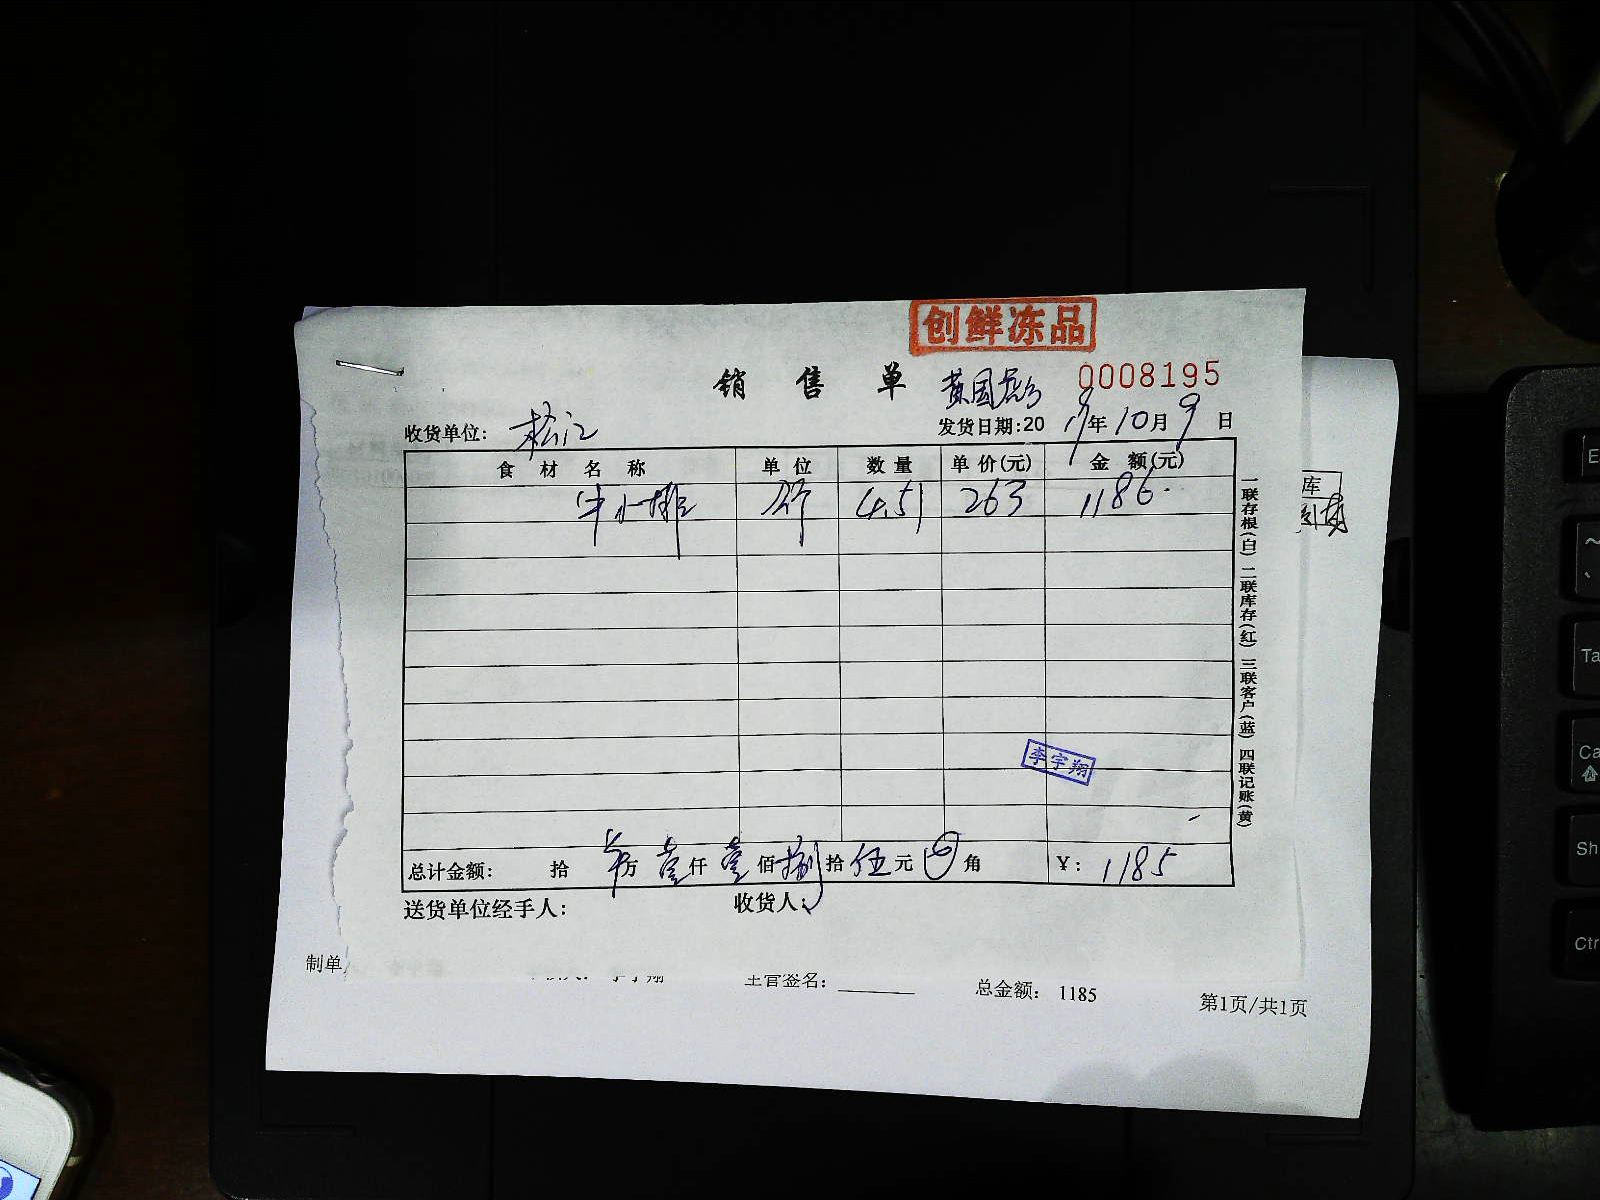 创鲜冻品
销售单 0008195
收货单位: 松江 发货日期:20 19年10月9日
食材名称 单位 数量 单价(元) 金额(元)
牛小排 斤 4.51 263 1186.
李宇翔
总计金额: 拾 万壹仟壹佰捌拾伍元 角 ¥: 1185
送货单位经手人: 收货人:
一联存根(白) 二联库存(红) 三联客户(蓝) 四联记账(黄)
库
制单 主管签名: 总金额: 1185
第1页/共1页
E
Ta
Ca
Sh
Ctr